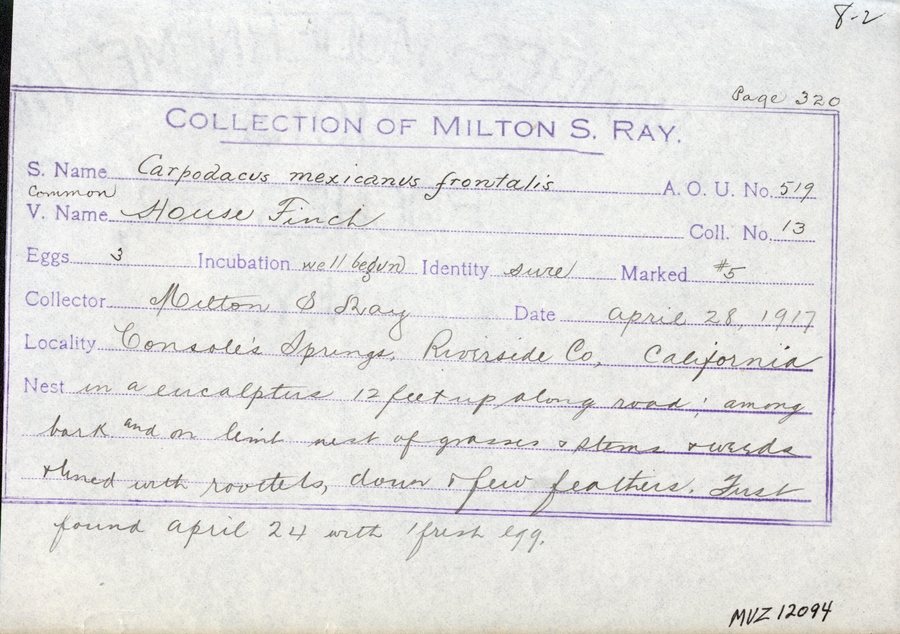 8-2
Page 320
COLLECTION OF MILTON S. RAY.
S. Name Carpodacus mexicanus frontalis A. O. U. No. 519
Common
V. Name House Finch Coll. No. 13
Eggs 3 Incubation well begun Identity sure Marked #5
Collector Milton S Ray Date April 28, 1917
Locality Console's Springs, Riverside Co, California
Nest in a eucalptus 12 feet up along road; among
bark and on limb nest of grasses & stems & weeds
& lined with rootlets, down & few feathers. First
found April 24 with 1 fresh egg.
MVZ 12094